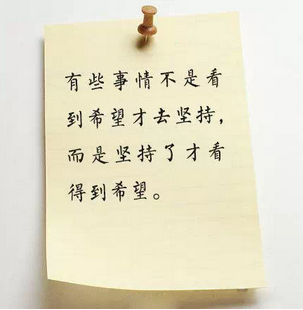 有些事情不是看
到希望才去坚持，
而是坚持了才看
得到希望。